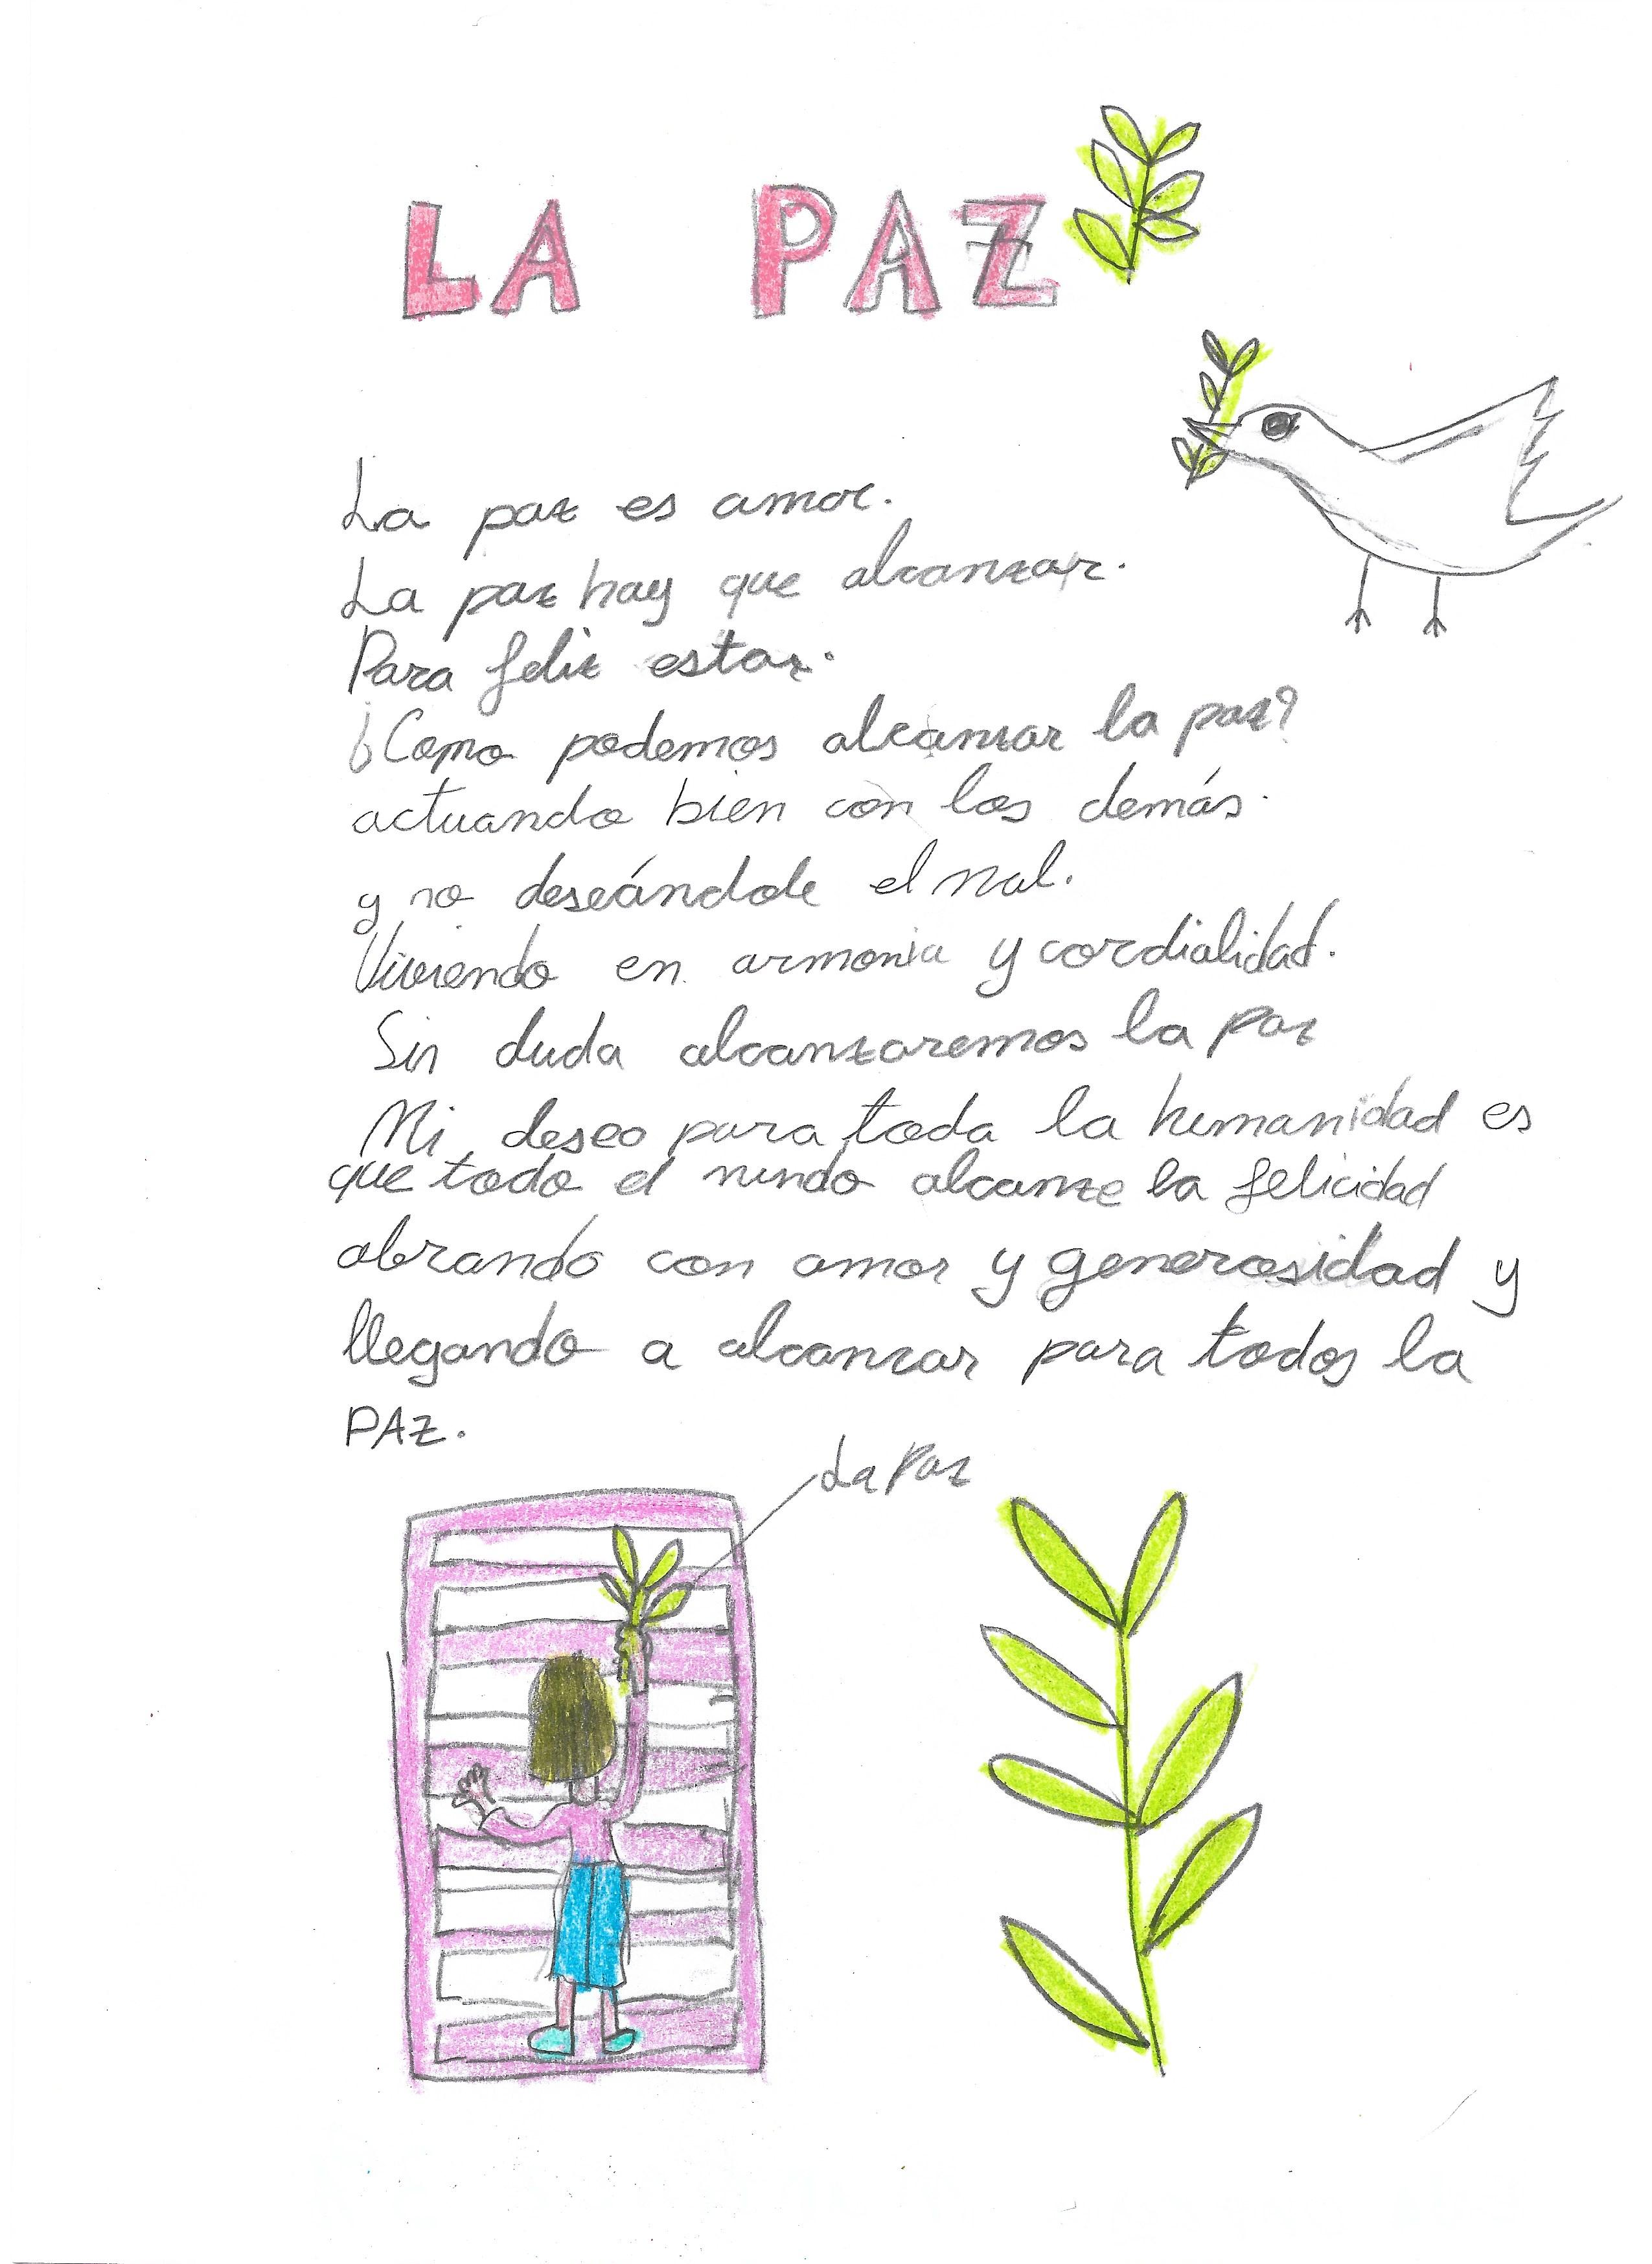 LA PAZ
La paz es amor.
La paz hay que alcanzar.
Para feliz estar.
¿Como podemos alcanzar la paz?
actuando bien con los demás.
y no deseándole el mal.
Viviendo en armonia y cordialidad.
Sin duda alcanzaremos la paz
Mi deseo para toda la humanidad es
que todo el mundo alcance la felicidad
obrando con amor y generosidad y
llegando a alcanzar para todos la
PAZ.
La Paz